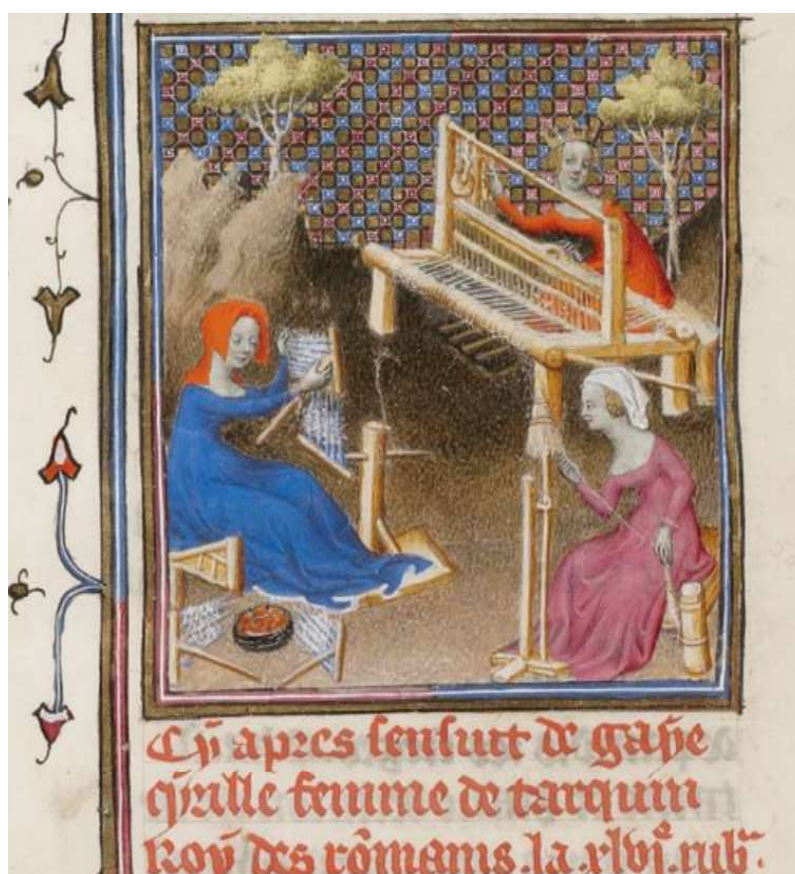 Cy apres sensuit de gaye
cyrille femme de tarquin
Roy des rômains .la .xlvjͤ. rub